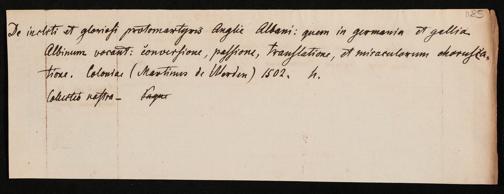 1185
De incliti et gloriosi protomartyris Anglie Albani: quem in germania et gallia
Albinum vocant: conversione, passione, translatione, et miraculorum chorusca-
tione. Coloniae (Martinus de Werden) 1502. 4.
Collectio nostra_